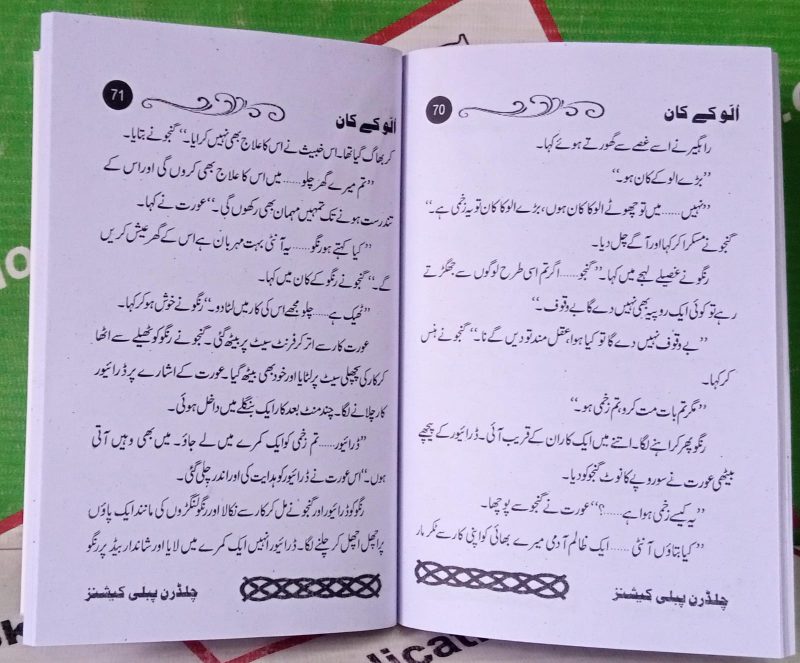 اُلّو کے کان
70
راہگیر نے اسے غصے سے گھورتے ہوئے کہا۔
’’بڑے الو کے کان ہو۔‘‘
’’نہیں...... میں تو چھوٹے الو کا کان ہوں، بڑے الو کا کان تو یہ زخمی ہے۔‘‘
گنجو نے مسکرا کر کہا اور آگے چل دیا۔
رنگو نے غصیلے لہجے میں کہا۔’’ گنجو...... اگر تم اسی طرح لوگوں سے جھگڑتے
رہے تو کوئی ایک روپیہ بھی نہیں دے گا بے وقوف۔‘‘
’’بے وقوف نہیں دے گا تو کیا ہوا، عقل مند تو دیں گے نا۔‘‘ گنجو نے ہنس
کر کہا۔
’’مگر تم بات مت کرو، تم زخمی ہو۔‘‘
رنگو پھر کراہنے لگا۔ اتنے میں ایک کار ان کے قریب آئی۔ ڈرائیور کے پیچھے
بیٹھی عورت نے سو روپے کا نوٹ گنجو کو دیا۔
’’یہ کیسے زخمی ہوا ہے......؟‘‘ عورت نے گنجو سے پوچھا۔
’’کیا بتاؤں آنٹی...... ایک ظالم آدمی میرے بھائی کو اپنی کار سے ٹکر مار
چلڈرن پبلی کیشنز
اُلّو کے کان
71
کر بھاگ گیا تھا۔ اس خبیث نے اس کا علاج بھی نہیں کرایا۔‘‘ گنجو نے بتایا۔
’’تم میرے گھر چلو...... میں اس کا علاج بھی کروں گی اور اس کے
تندرست ہونے تک تمہیں مہمان بھی رکھوں گی۔‘‘ عورت نے کہا۔
’’کیا کہتے ہو رنگو...... یہ آنٹی بہت مہربان ہے اس کے گھر عیش کریں
گے۔‘‘ گنجو نے رنگو کے کان میں کہا۔
’’ٹھیک ہے...... چلو مجھے اس کی کار میں لٹا دو۔‘‘ رنگو نے خوش ہو کر کہا۔
عورت کار سے اتر کر فرنٹ سیٹ پر بیٹھ گئی۔ گنجو نے رنگو کو ٹھیلے سے اٹھا
کر کار کی پچھلی سیٹ پر لٹایا اور خود بھی بیٹھ گیا۔ عورت کے اشارے پر ڈرائیور
کار چلانے لگا۔ چند منٹ بعد کار ایک بنگلے میں داخل ہوئی۔
’’ڈرائیور...... تم زخمی کو ایک کمرے میں لے جاؤ۔ میں بھی وہیں آتی
ہوں۔‘‘ اس عورت نے ڈرائیور کو ہدایت کی اور اندر چلی گئی۔
رنگو کو ڈرائیور اور گنجو نے مل کر کار سے نکالا اور رنگو لنگڑوں کی مانند ایک پاؤں
پر اچھل اچھل کر چلنے لگا۔ ڈرائیور انہیں ایک کمرے میں لایا اور شاندار بیڈ پر رنگو
چلڈرن پبلی کیشنز